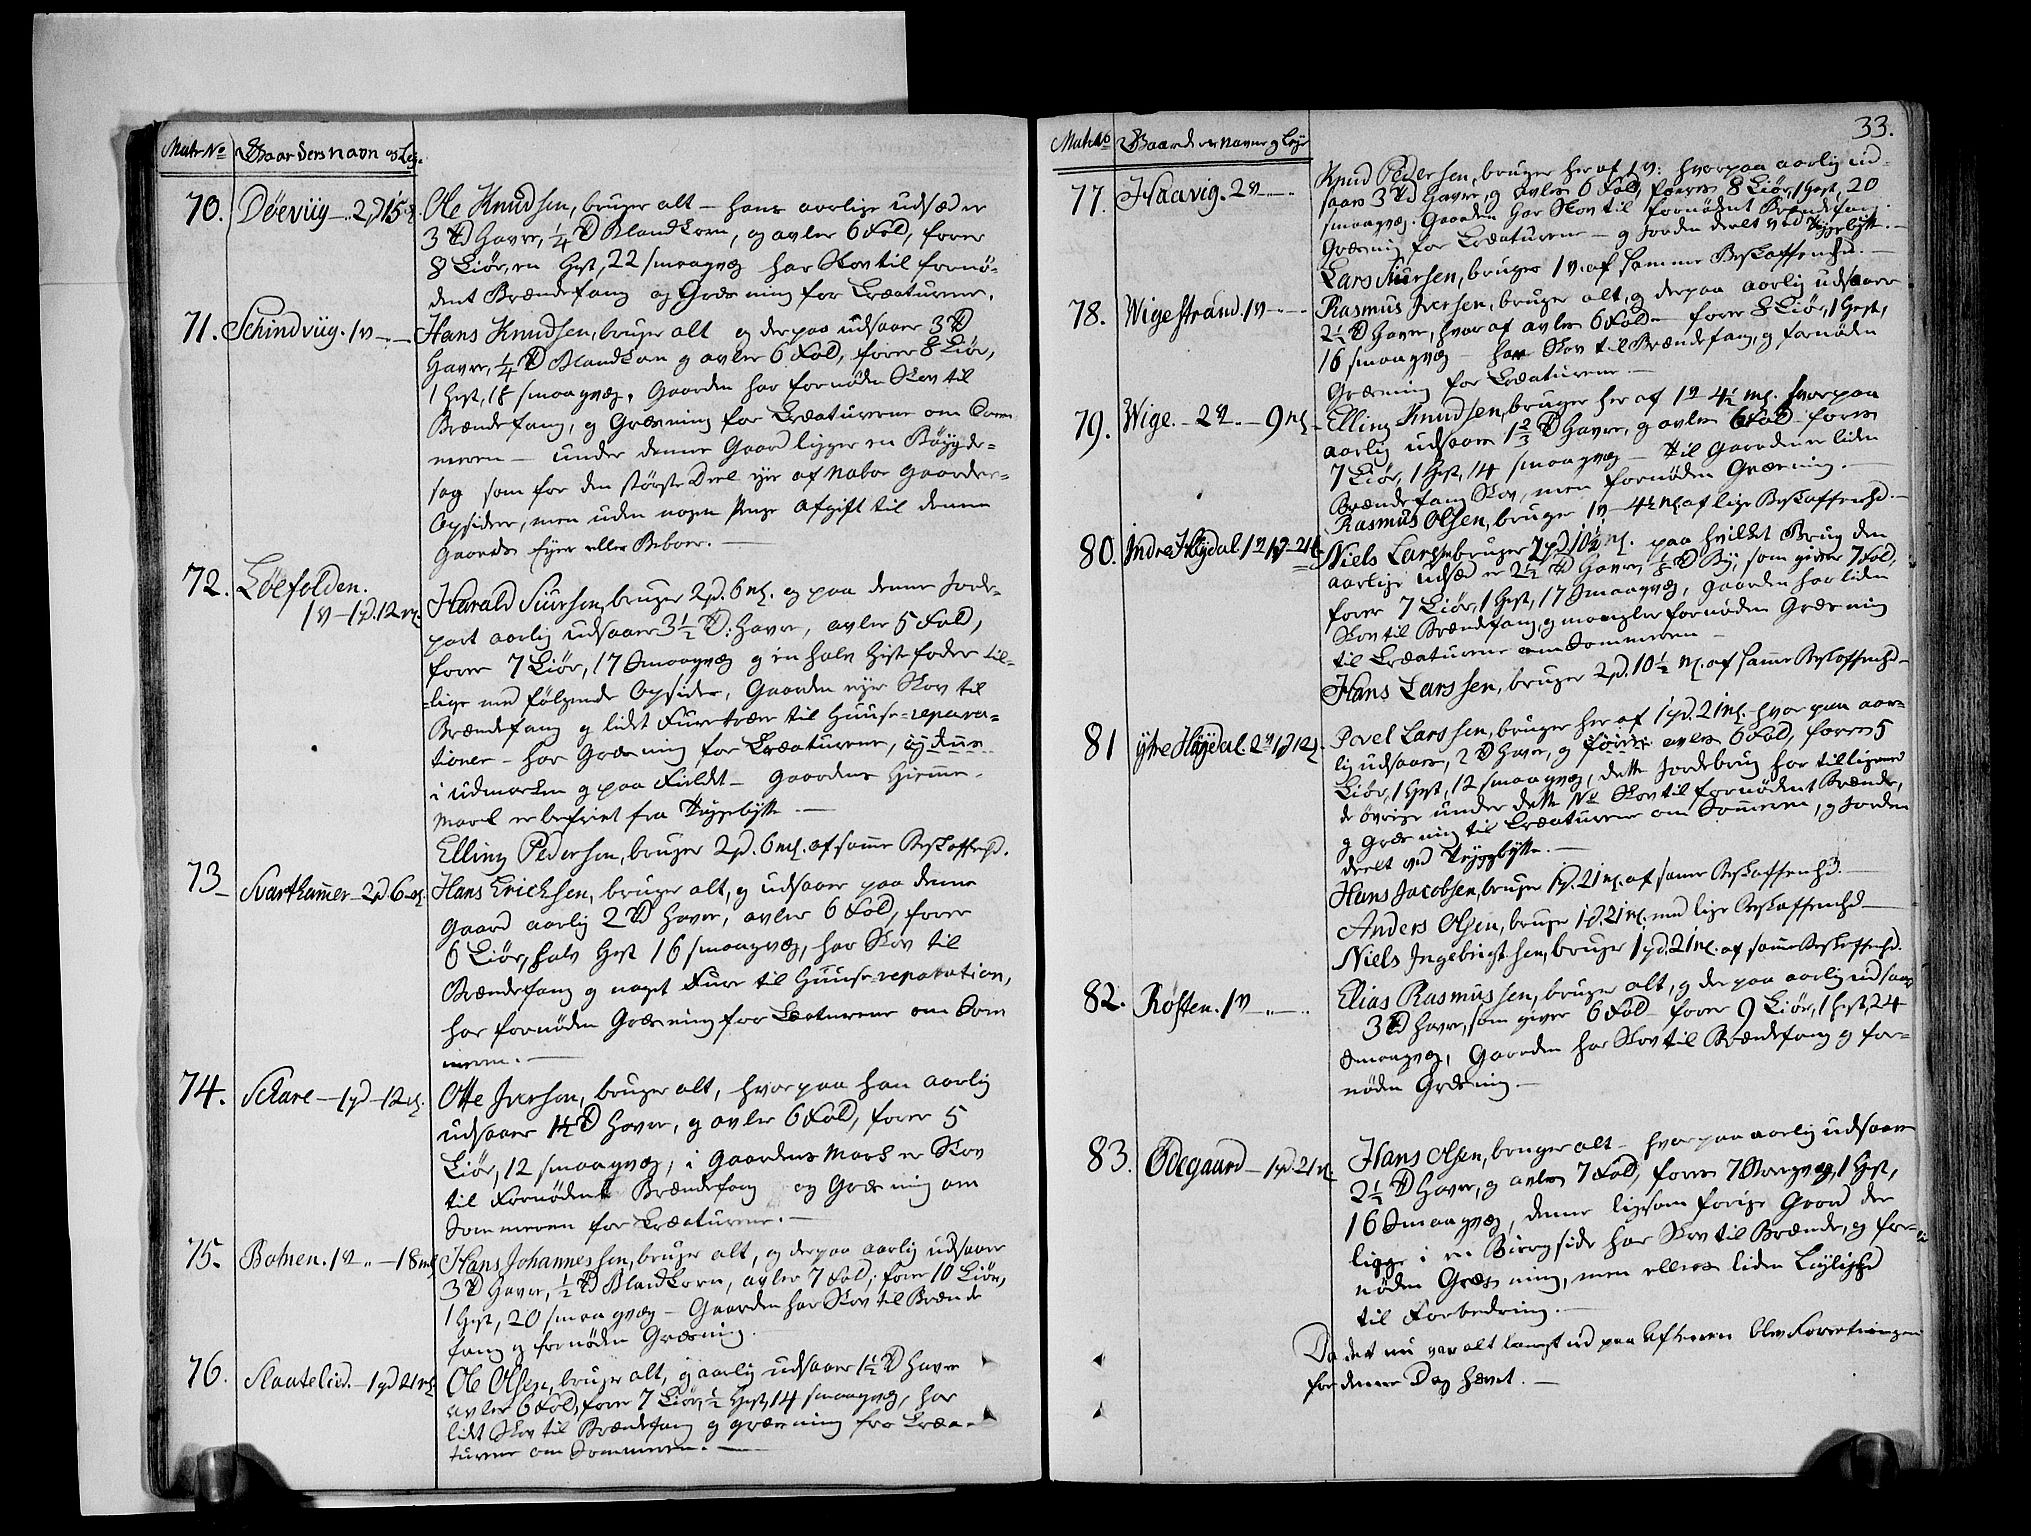 Matr No Gaardens navn og Leje
70. Døeviig – 2 pd 15 ml. Ole Knudsen, bruger alt – hans aarlige udsæd er
3 Td Havre, 1/4 Td Blandkorn, og avler 6 Fold, foder
8 Kiør, en Hest, 22 smaaqvæg har Skov til fornø-
dent Brændefang og Græsning for Creaturene.
71. Schindviig. 1 v – Hans Knudsen, bruger alt og derpaa udsaaer 3 Td
Havre, 1/4 Td Blandkorn og avler 6 Fold, foder 8 Kiør,
1 Hest, 18 smaaqvæg. Gaarden har fornøden Skov til
Brændefang, og Græsning for Creaturene om Som
meren – under denne Gaard ligger en Bøygde-
sag som for den største Deel ejes af Nabo Gaardenes
Opsidere, men uden nogen Afgift til denne
Gaards Ejer eller Beboer. –
72. Løefolden.
1 v – 1 pd. 12 ml. Harald Siursen, bruger 2 pd. 6 ml. og paa denne Jorde-
part aarlig udsaaer 3 1/2 Td: Havre, avler 5 Fold,
foder 7 Kiør, 17 Smaaqvæg og en halv Hest foder til-
lige med følgende Opsider, Gaarden ejer Skov til
Brændefang og lidt Furetræer til Huuse-repara-
tioner – har Græsning for Creaturene,
i Udmarken og paa Fieldt – Gaardens Hiemme-
Mark er befriet fra Teigebytte –
Elling Pedersen, bruger 2 pd. 6 ml. af samme Beskaffenhd.
73 – Svarthammer – 2 pd 6 ml. Hans Ericksen, bruger alt, og udsaaer paa denne
Gaard aarlig 2 Td Havre, avler 6 Fold, foder
6 Kiør, halv Hest 16 smaaqvæg, har Skov til
Brændefang og noget Fure til Huuse-reparation,
har fornøden Græsning for Creaturene om Som
meren. –
74. Schare – 1 pd – 12 ml. Otte Iversen, bruger alt, hvorpaa han aarlig
udsaaer 1 1/2 Td Havre, og avler 6 Fold, foder 5
Kiør, 12 smaaqvæg, i Gaardens Mark er Skov
til Fornødent Brændefang og Græsning om
Sommeren for Creaturene. –
75. Botnen. 1 v .. – 18 ml Hans Johannessen, bruger alt, og derpaa aarlig udsaaer
3 Td Havre, 1/2 Td Blandkorn, avler 7 Fold, foder 10 Kiør,
1 Hest, 20 smaaqvæg – Gaarden har Skov til Brænde
fang og fornøden Græsning.
76. Slaatelid. – 1 pd 21 ml Ole Olsen, bruger alt, og aarlig udsaaer 1 1/2 Td Havre
avler 6 Fold, foder 7 Kiør, 1/2 Hest, 14 smaaqvæg, har
lidt Skov til Brændefang og græsning for Crea-
turene om Sommeren. –
33.
Matr No Gaardenes navne og Leje
77. Haavig. 2 v – Knud Pedersen, bruger her af 1 v: hvorpaa aarlig ud-
saaes 3 Td Havre, og avles 6 Fold, foeres 8 Kiør, 1 Hest, 20
smaaqvæg. Gaarden har Skov til fornødent Brændefang.
Græsning for Creaturene – og Jorden deelt ved Teigebytte. –
Lars Siursen, bruger 1 v. af samme Beskaffenhd. –
78. Wigestrand. 1 v – Rasmus Iversen, bruger alt, og derpaa aarlig udsaaer
2 1/2 Td Havre, hvoraf avles 6 Fold – foder 8 Kiør, 1 Hest,
16 smaaqvæg – har Skov til Brændefang, og fornøden
Græsning for Creaturene. –
79. Wige. – 2 v. – 9 ml – Elling Knudsen, bruger her af 1 v 4 1/2 ml. hvorpaa
aarlig udsaaes 1 2/3 Td Havre, og avles 6 Fold foder
7 Kiør, 1 Hest, 14 smaaqvæg – til Gaarden er liden
Brændefang Skov, men fornøden Græsning. –
Rasmus Olsen, bruger 1 v – 4 1/2 ml. af lige Beskaffenhd. –
80. Indre Høydal 1 v 1 pd – 21 ml. Niels Larsen bruger 2 pd 10 1/2 ml. paa hvilket Brug den
aarlige udsæd er 2 1/2 Td Havre, 1/8 Td Byg, som giver 7 Fold,
foder 7 Kiør, 1 Hest, 17 Smaaqvæg, Gaarden har liden
Skov til Brændefang, og mangler fornøden Græsning
til Creaturene om Sommeren –
Hans Larssen, bruger 2 pd. 10 1/2 ml. af samme Beskaffenhd –
81 Ytre Høydal. 2 v 1 pd 12 ml. Povel Larssen, bruger her af 1 pd. 21 ml. hvorpaa aar-
lig udsaaes, 2 Td Havre, og avles 6 Fold, foeres 5
Kiør, 1 Hest, 12 smaaqvæg, dette Jordebrug har tilligemed
de øvrige under dette No Skov til fornødent Brænde,
og Græsning til Creaturene om Sommeren, og Jorden
deelt ved Teiggebytte. –
Hans Jacobsen, bruger 1 pd. 21 ml. af samme Beskaffenhd. –
Anders Olsen, bruger 1 pd. 21 ml. med lige Beskaffenhd –
Niels Ingebrigtsen, bruger 1 pd. 21 ml. af samme Beskaffenhd.
82. Røsten. 1 v – Elias Rasmussen, bruger alt, og der paa aarlig udsaaer
3 Td Havre, som giver 6 Fold – foder 9 Kiør, 1 Hest, 24
smaaqvæg, Gaarden har Skov til Brændefang og for-
nøden Græsning –
83. Ødegaard – 1 pd 21 ml. Hans Olsen, bruger alt – hvorpaa aarlig udsaaes
2 1/2 Td Havre, og avles 7 Fold, foeres 7 Storqvæg, 1 Hest,
16 Smaaqvæg, denne ligesom forige Gaard der
ligge i en Biergside har Skov til Brænde, og for-
nøden Græsning, men ellers liden Leylighed
til Forbedring. –
Da det nu var alt langt ud paa Aftenen blev Forretningen
for denne Dag hævet. –